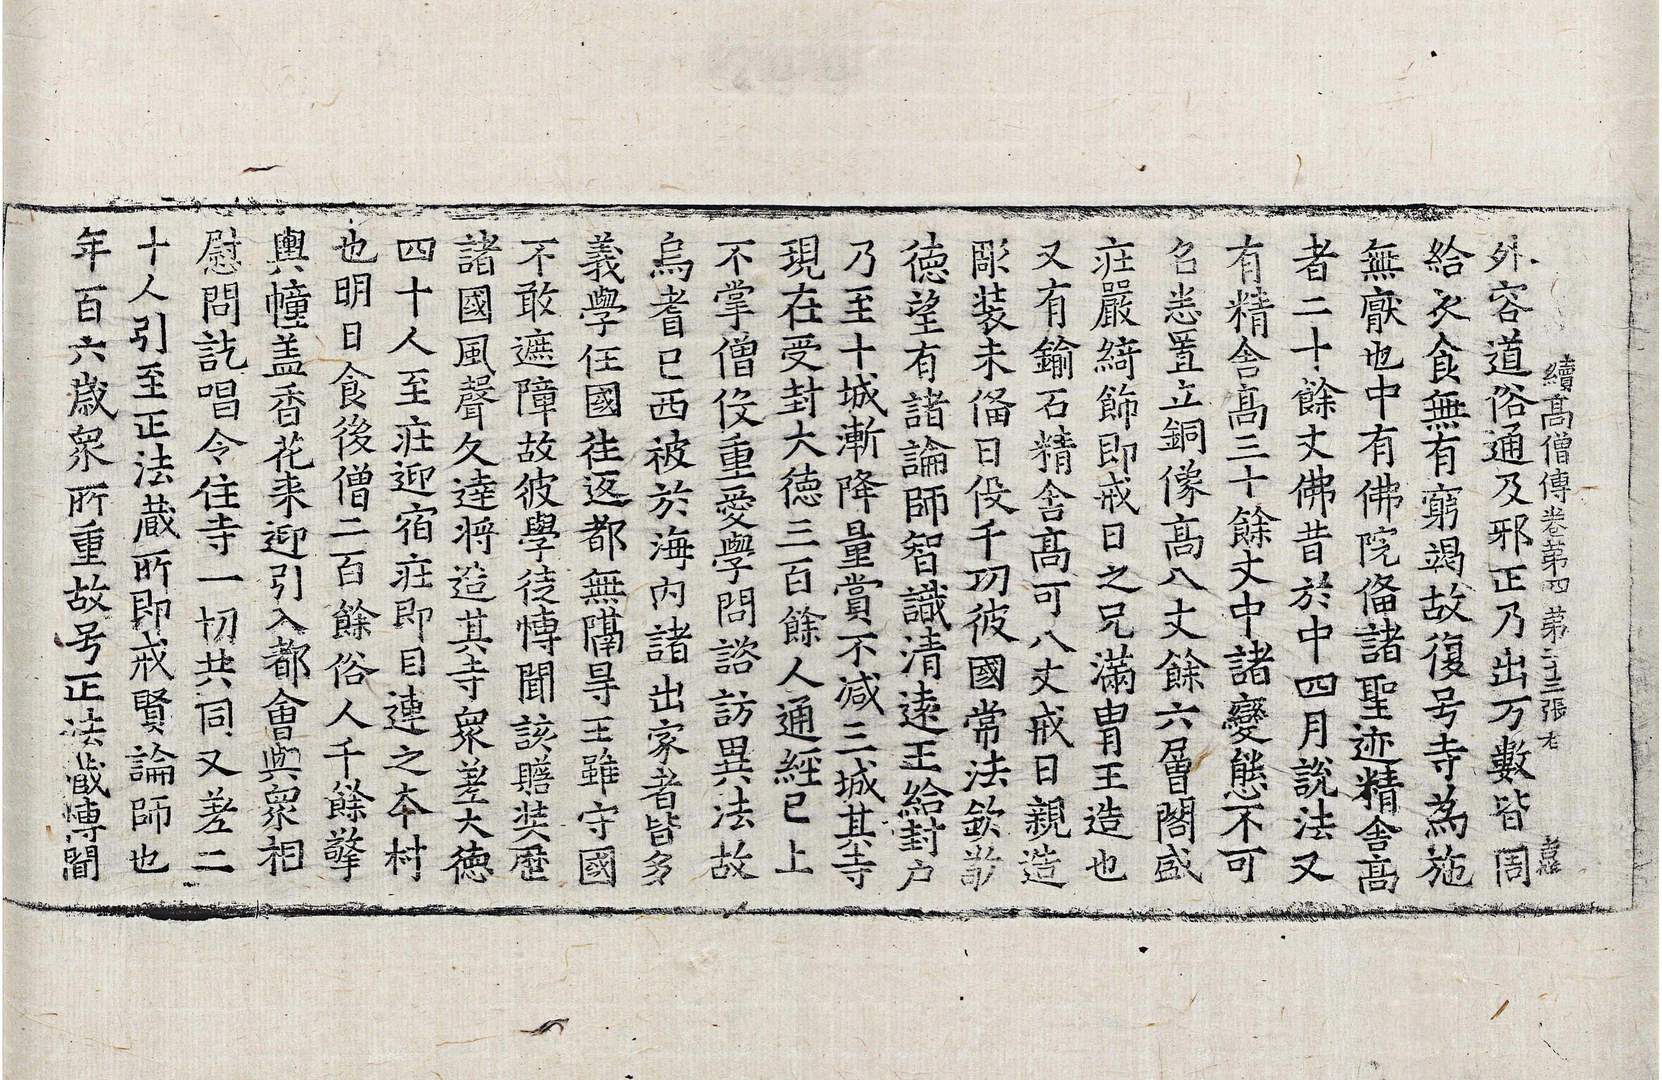 續髙僧傳卷第四 第二十三張 右
外容道俗通及邪正乃出万數皆周
給衣食無有窮竭故復号寺為施
無厭也中有佛院俻諸聖迹精舍髙
者二十餘丈佛昔於中四月說法又
有精舍髙三十餘丈中諸變態不可
名悉置立銅像髙八丈餘六層閣盛
莊嚴綺飾即戒日之兄滿胄王造也
又有鍮石精舍髙可八丈戒日親造
彫装未俻日役千功彼國常法欽敬
德望有諸論師智識清逺王給封户
乃至十城漸降量賞不減三城其寺
現在受封大德三百餘人通經已上
不掌僧役重愛學問諮訪異法故
烏耆已西被於海內諸出家者皆多
義學任國往返都無隔㝵王雖守國
不敢遮障故彼學徒博聞該贍奘歷
諸國風聲久逹將造其寺衆差大德
四十人至莊迎宿莊即目連之夲村
也明日食後僧二百餘俗人千餘擎
輿幢盖香花来迎引入都會與衆相
慰問訖唱令住寺一切共同又差二
十人引至正法蔵所即戒賢論師也
年百六歳衆所重故号正法蔵博聞